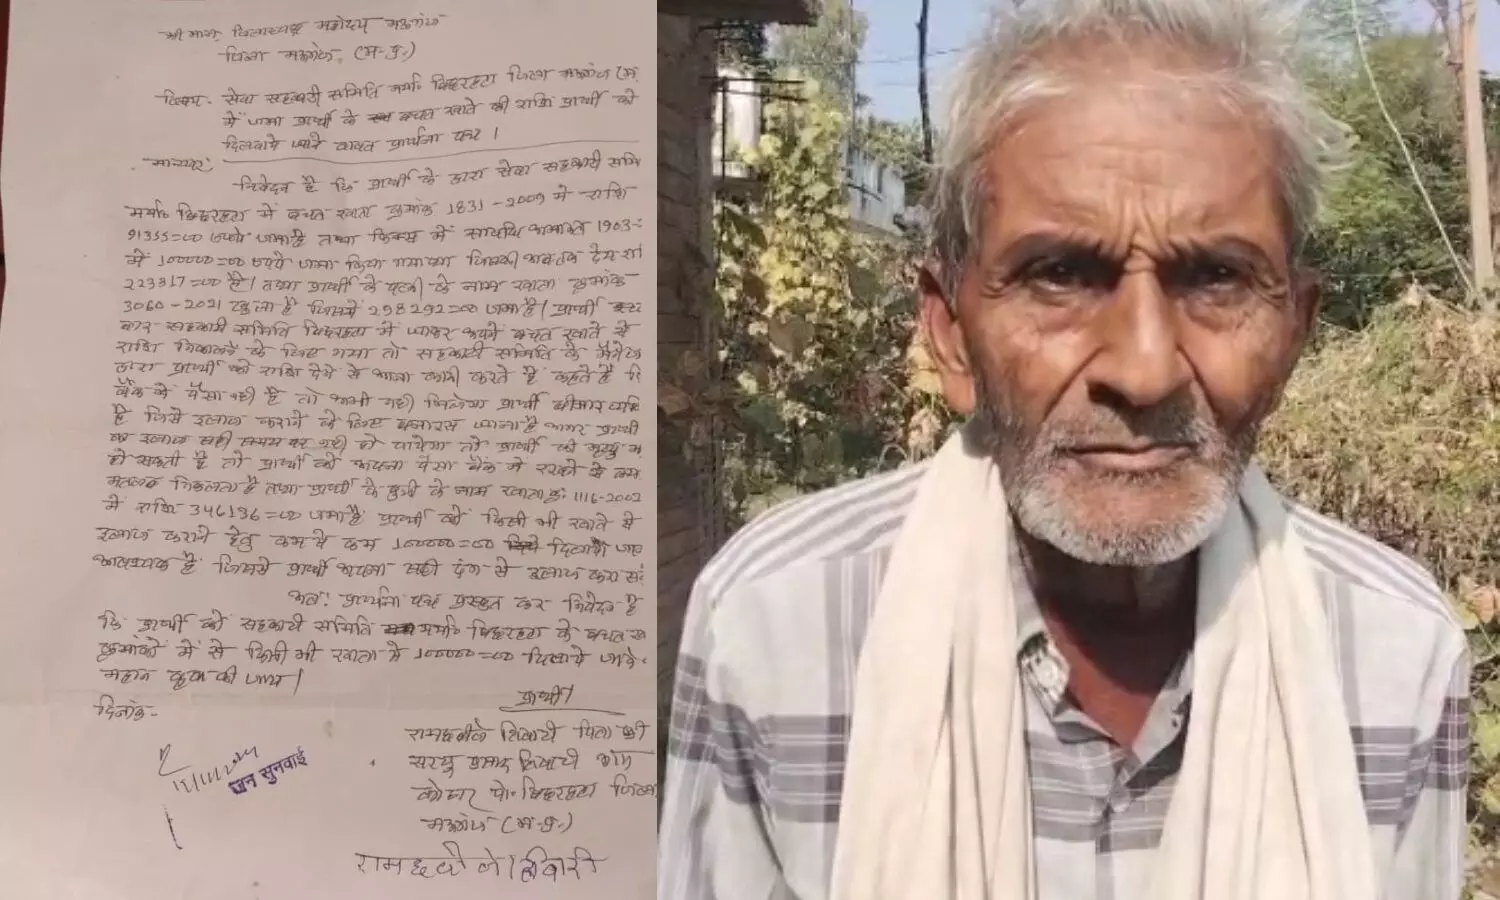 श्रीमान् जिलाध्यक्ष महोदय मऊगंज
जिला मऊगंज (म.प्र.)
विषय- सेवा सहकारी समिति मर्या० बिछरहटा जिला मऊगंज (म.
में जमा प्रार्थी के बचत खाते की राशि प्रार्थी को
दिलवाये जाने बावत प्रार्थना पत्र ।
मान्यवर,
निवेदन है कि प्रार्थी के द्वारा सेवा सहकारी समि
मर्या० बिछरहटा में बचत खाता क्रमांक 1831-2009 में राशि
91355=00 रुपये जमा है तथा फिक्स में 1903-
में 100000=00 रुपये जमा किया गया था जिसकी
223817=00 है। तथा प्रार्थी के पत्नी के नाम खाता क्रमांक
3060-2021 खुला है जिसमें 298292=00 जमा है। प्रार्थी
बार सहकारी समिति बिछरहटा में जाकर अपने बचत खाते से
राशि निकालने के लिए गया तो सहकारी समिति के मैनेज
द्वारा प्रार्थी को राशि देने से आना कानी करते है कहते है कि
बैंक में पैसा नही है तो अभी नही मिलेगा प्रार्थी बीमार व्यक्ति
है जिसे इलाज कराने के लिए बनारस जाना है अगर प्रार्थी
का इलाज सही समय पर नही हो पायेगा तो प्रार्थी की मृत्यु
हो सकती है तो प्रार्थी को अपना पैसा बैंक में रखने से क्या
मतलब निकलता है तथा प्रार्थी के पुत्री के नाम खाता क्र: 1116-2002
में राशि 346136=00 जमा है प्रार्थी को किसी भी खाते से
इलाज कराने हेतु कम से कम 100000=00 दिलाया जाना
आवश्यक है जिससे प्रार्थी अपना सही ढंग से इलाज करा सके
अत: प्रार्थना पत्र प्रस्तुत कर निवेदन है
कि प्रार्थी को सहकारी समिति मर्या० बिछरहटा के बचत खा
क्रमांकों में से किसी भी खाता से 100000=00 दिलाये जावे
महान कृपा की जाय।
प्रार्थी
दिनांक-
रामछबीले तिवारी पिता श्री
सरयु प्रसाद तिवारी ग्राम
पो. बिछरहटा जिला
मऊगंज (म.प्र.)
जन सुनवाई
रामछबीले तिवारी